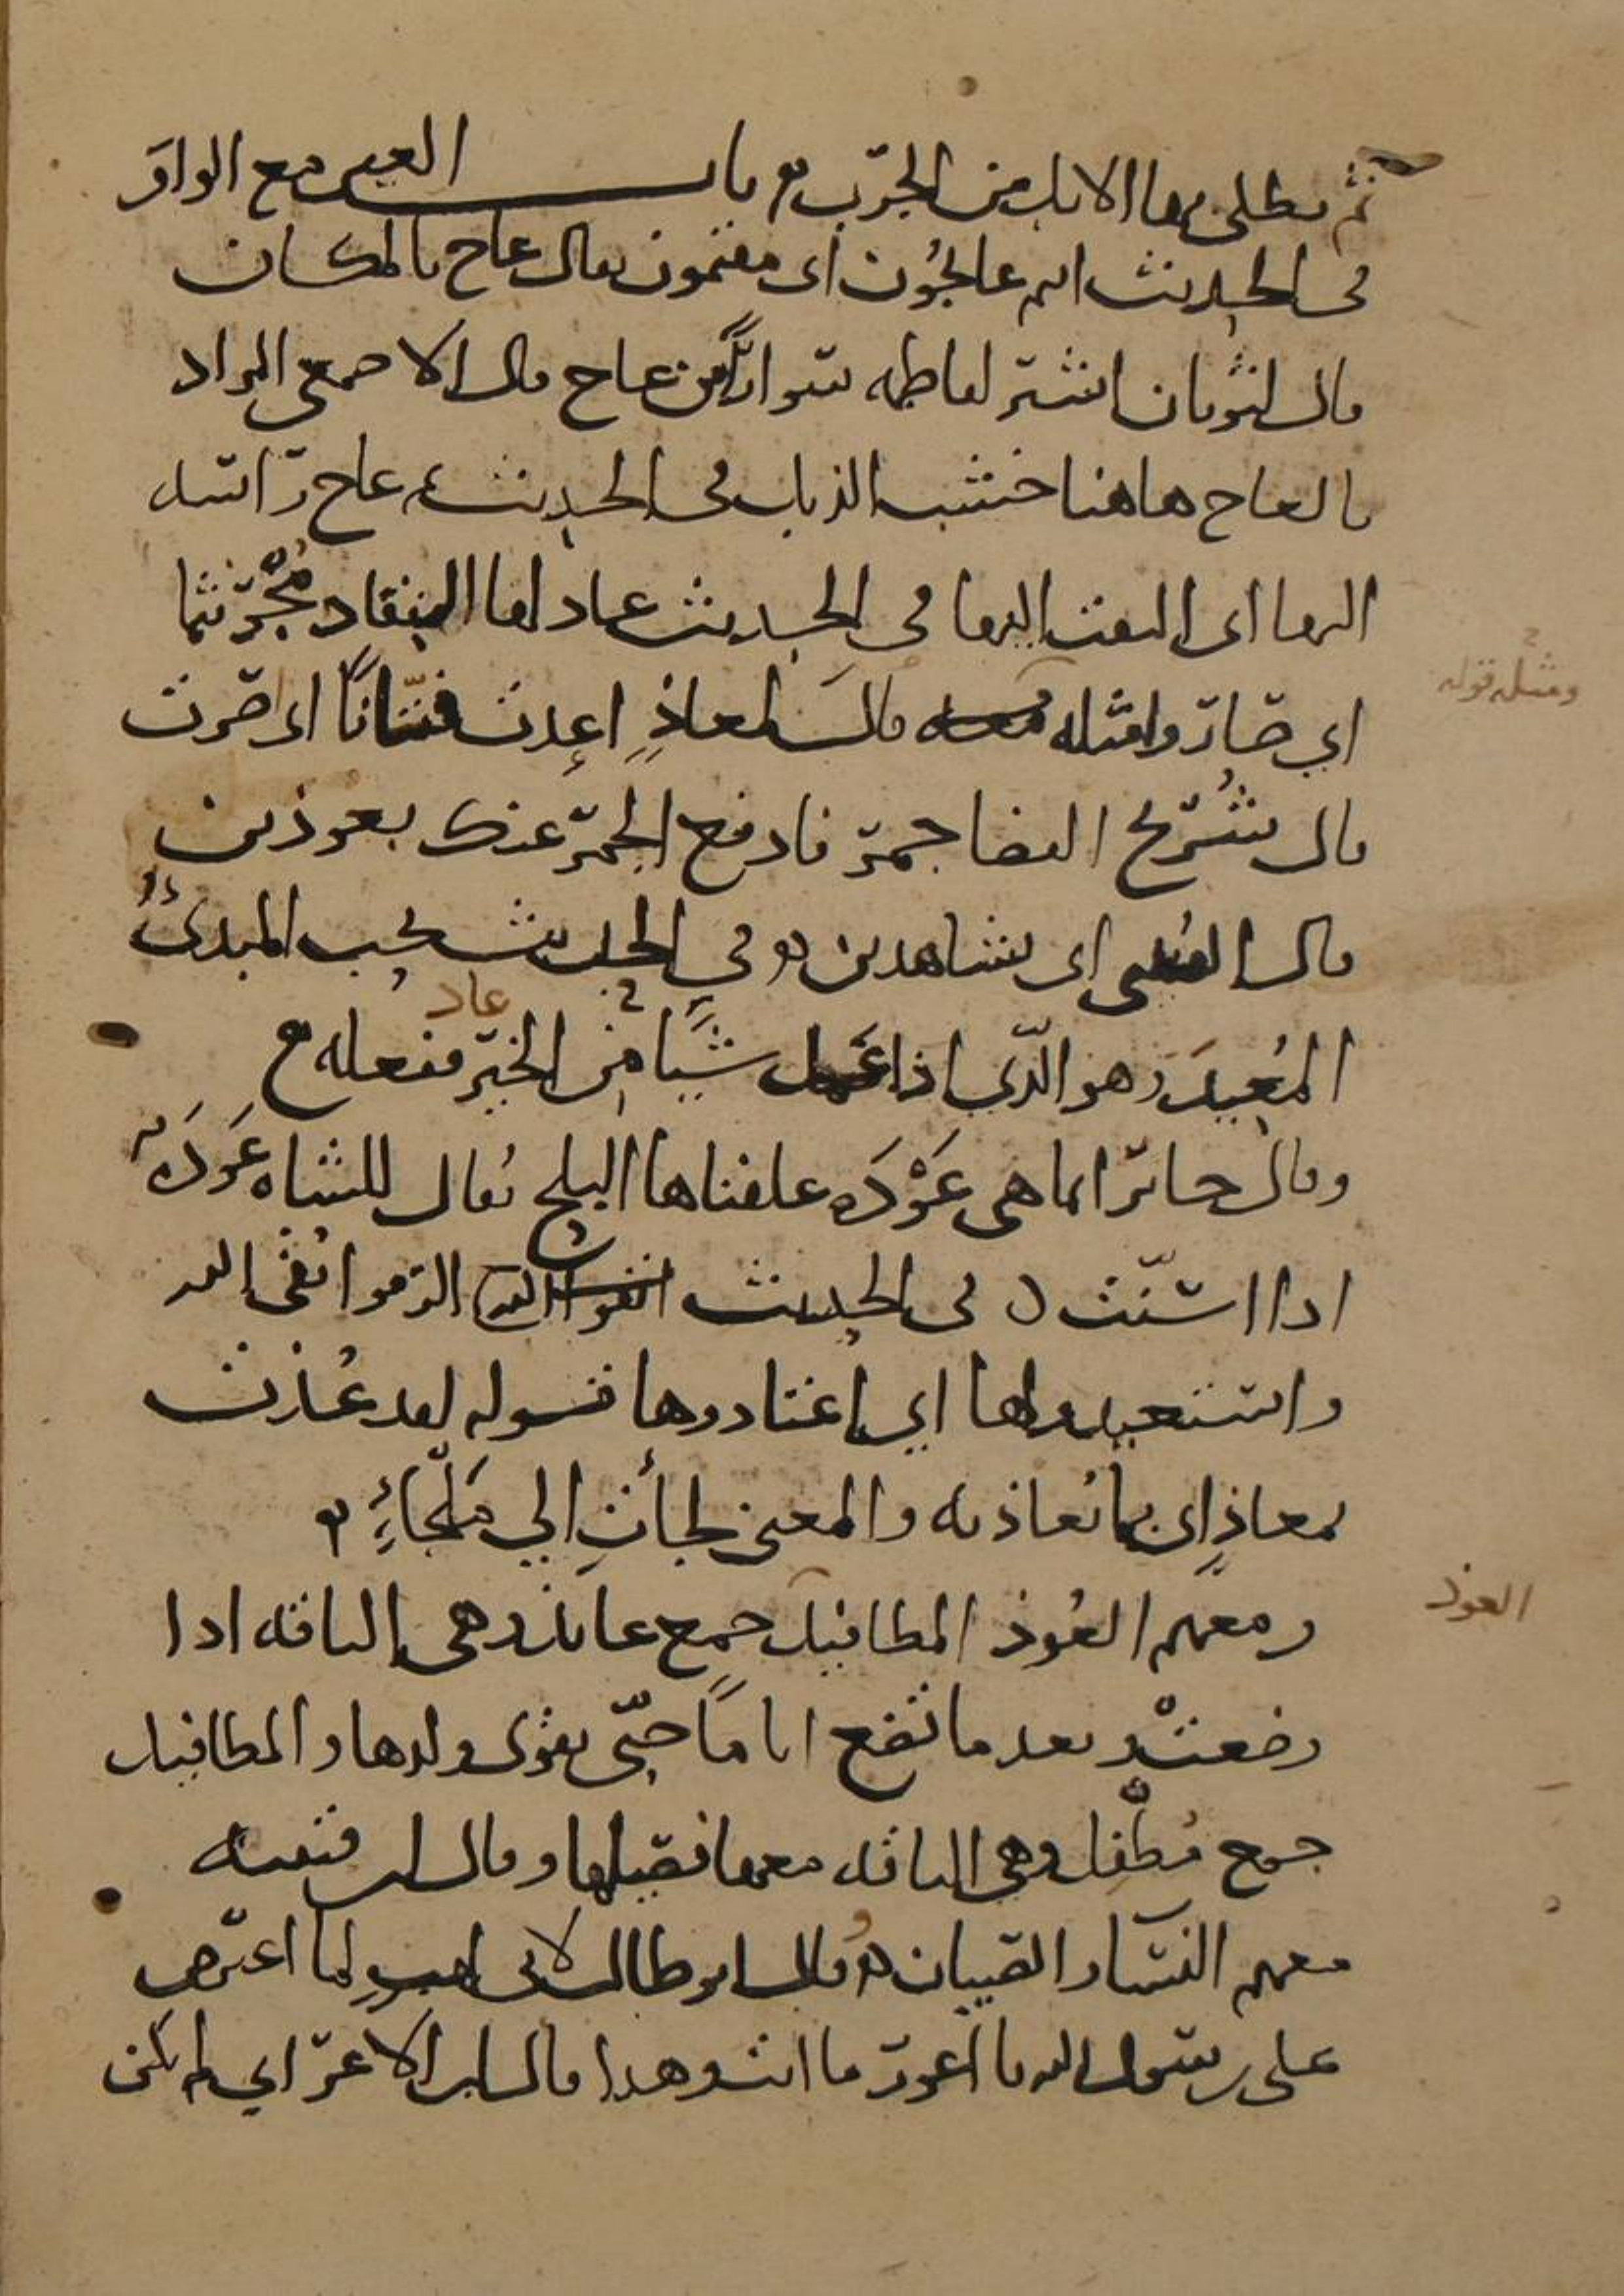 ثم تطلى بها الابل من الجرب باب العين مع الواو
في الحديث انهم عائجون اى مقيمون يقال عاج بالمكان
قال لثوبان اشتر لفاطمه سوارا من عاج قال الاصمعى المراد
بالعاج هاهنا خشب الذبل في الحديث عاج راسه
اليها اى التفت اليها في الحديث عاد لها النقاد مجرنثما
اي صار ومثله قال لمعاذ اعدت فتانا اى صرت
ومثله قوله
قال شريح القضا جمر فادفع الجمر عنك بعودين
قال القتيبى اى بشاهدين وفي الحديث يحب المبدئ
المعيد وهو الذي اذا عمل شيا من الخير ففعله
عاد
وقال جابر انما هى عودة علفناها البلح يقال للشاه عودة
اذا اسنت في الحديث الزموا تقى الله
واستعيدوها اي اعتادوها قوله لقد عذت
بمعاذ اى بما يعاذ به والمعنى لجأت الي ملجاء
ومعهم العوذ المطافيل جمع عائذ وهى الناقه اذا
العوذ
وضعت وبعد ما تضع اياما حتى يقوى ولدها والمطافيل
جمع مطفل وهي الناقه معها فصيلها وقال ابن قتيبه
معهم النسا والصبيان وقال ابو طالب لابى لهب لما اعترض
على رسول الله يا اعور ما انت وهذا قال ابن الاعرابي لم يكن